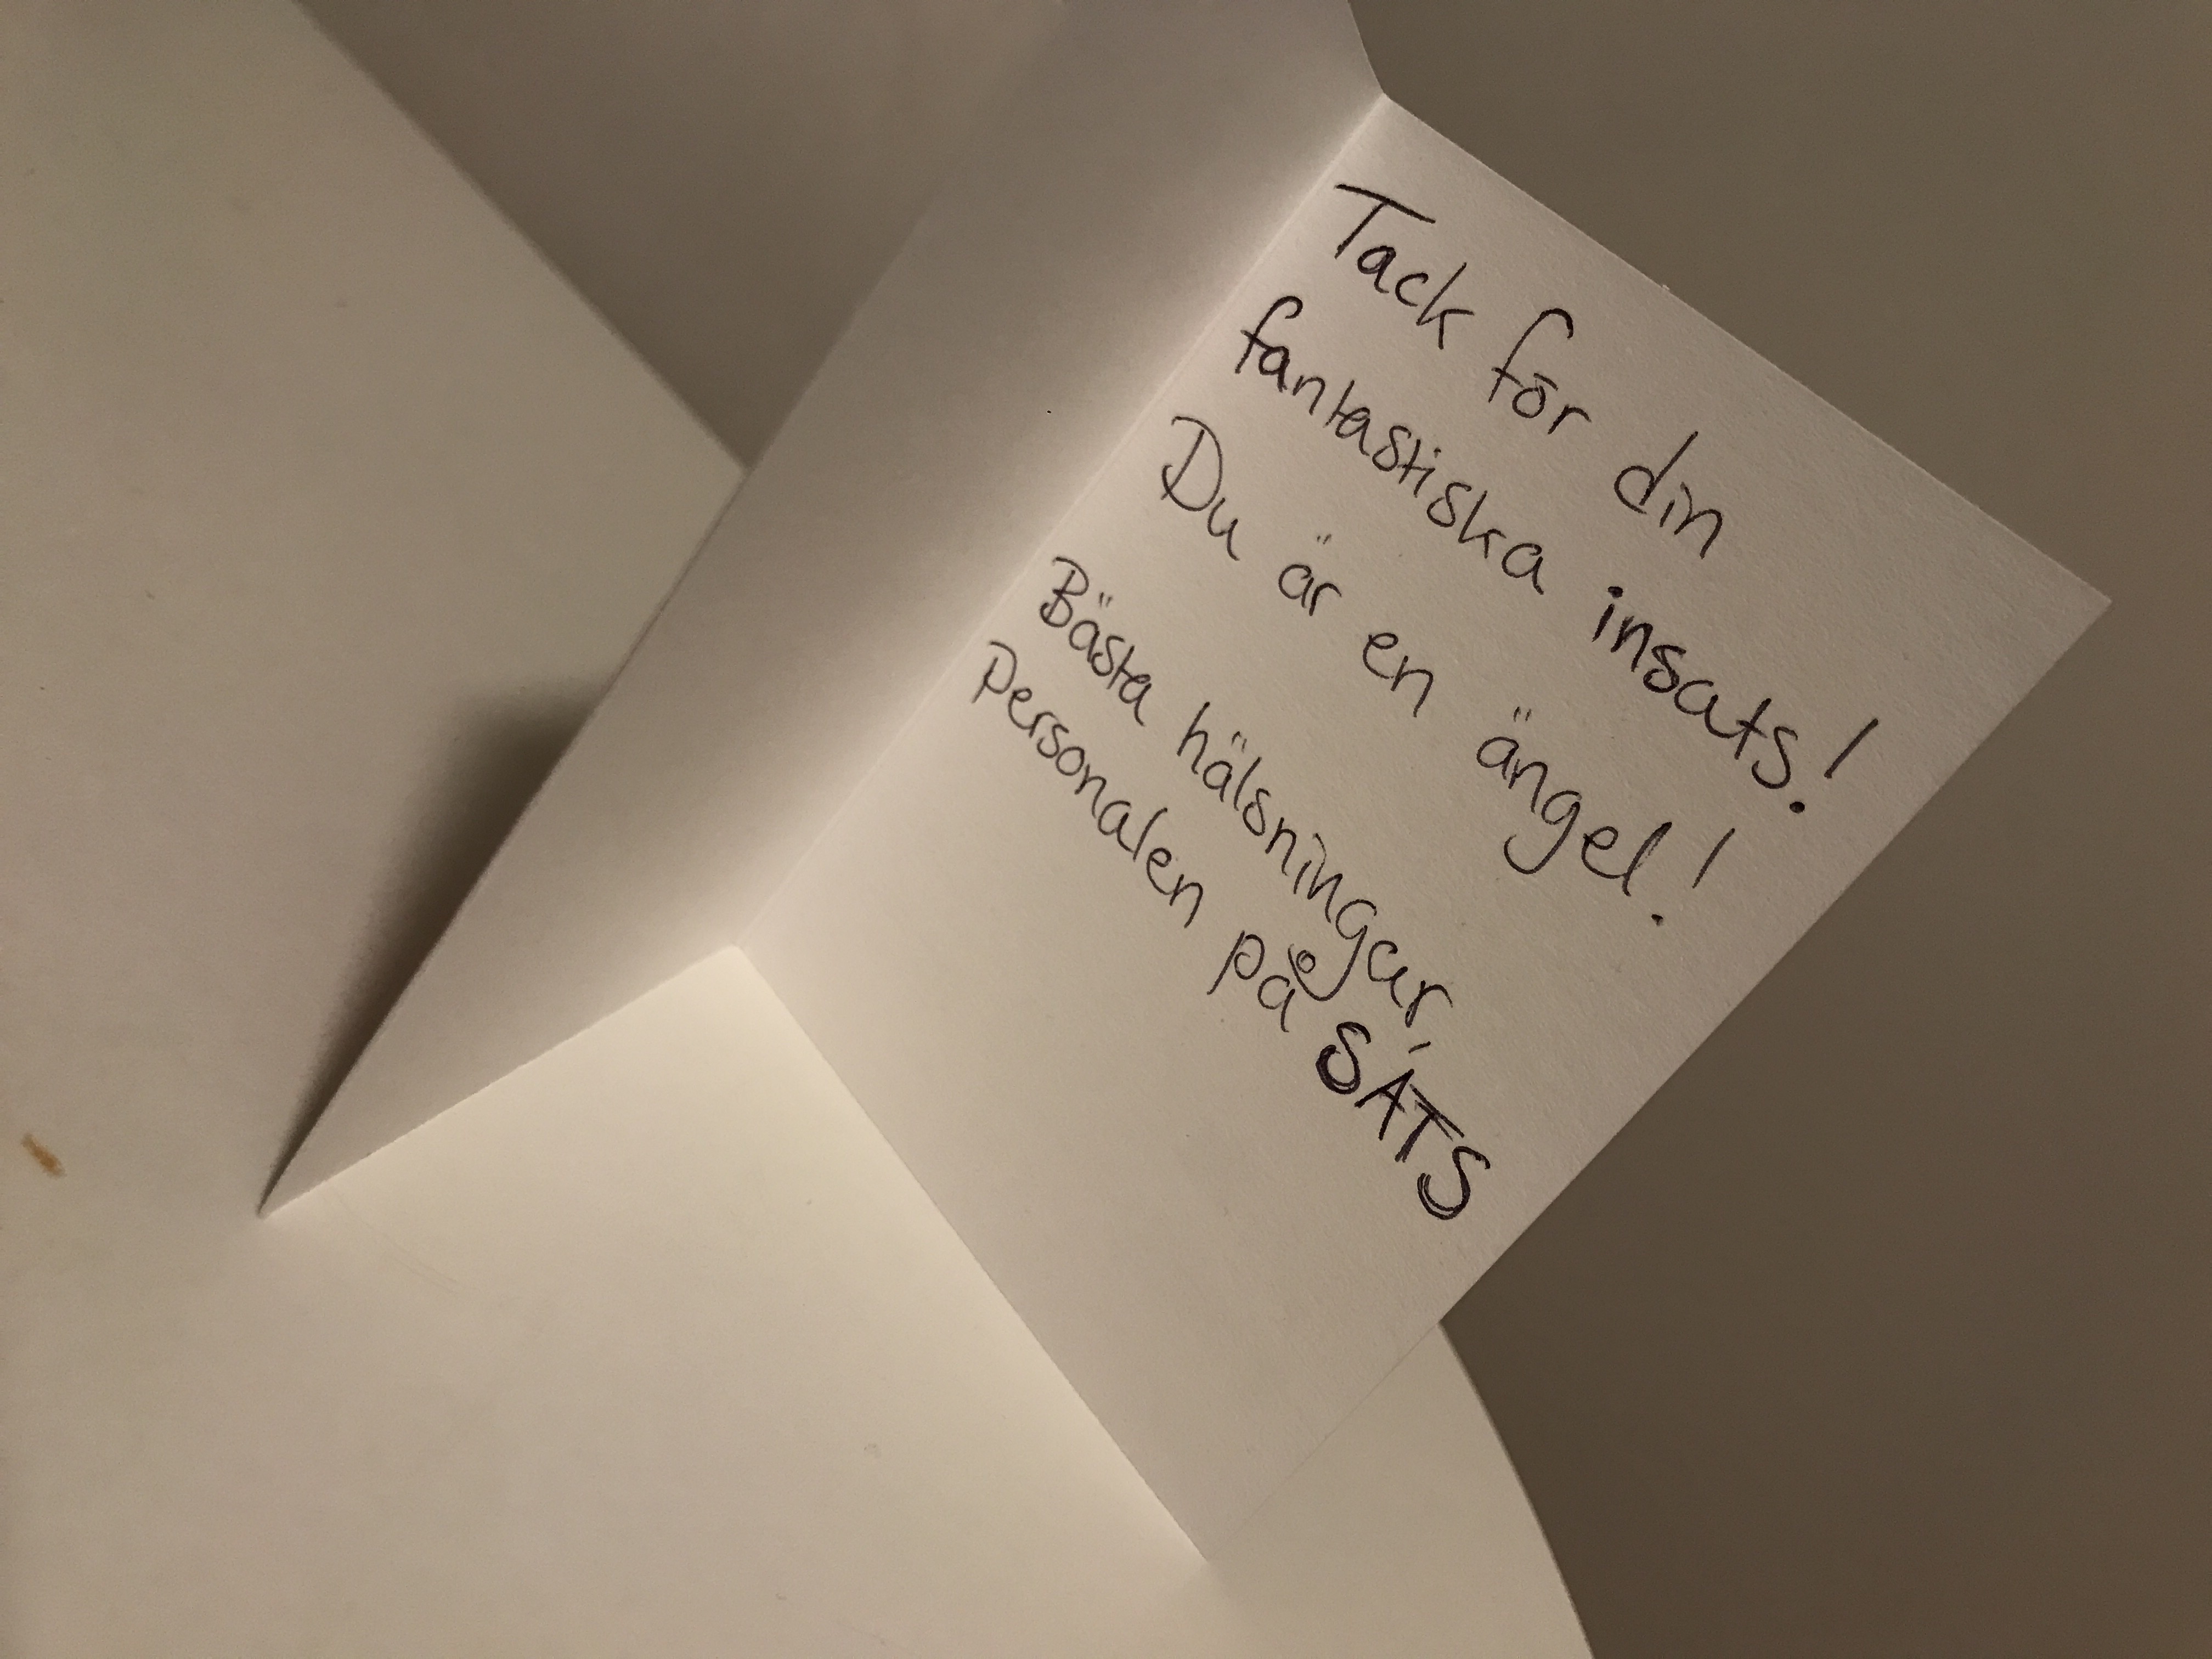 Tack för din
fantastiska insats!
Du är en ängel!
Bästa hälsningar,
Personalen på SATS